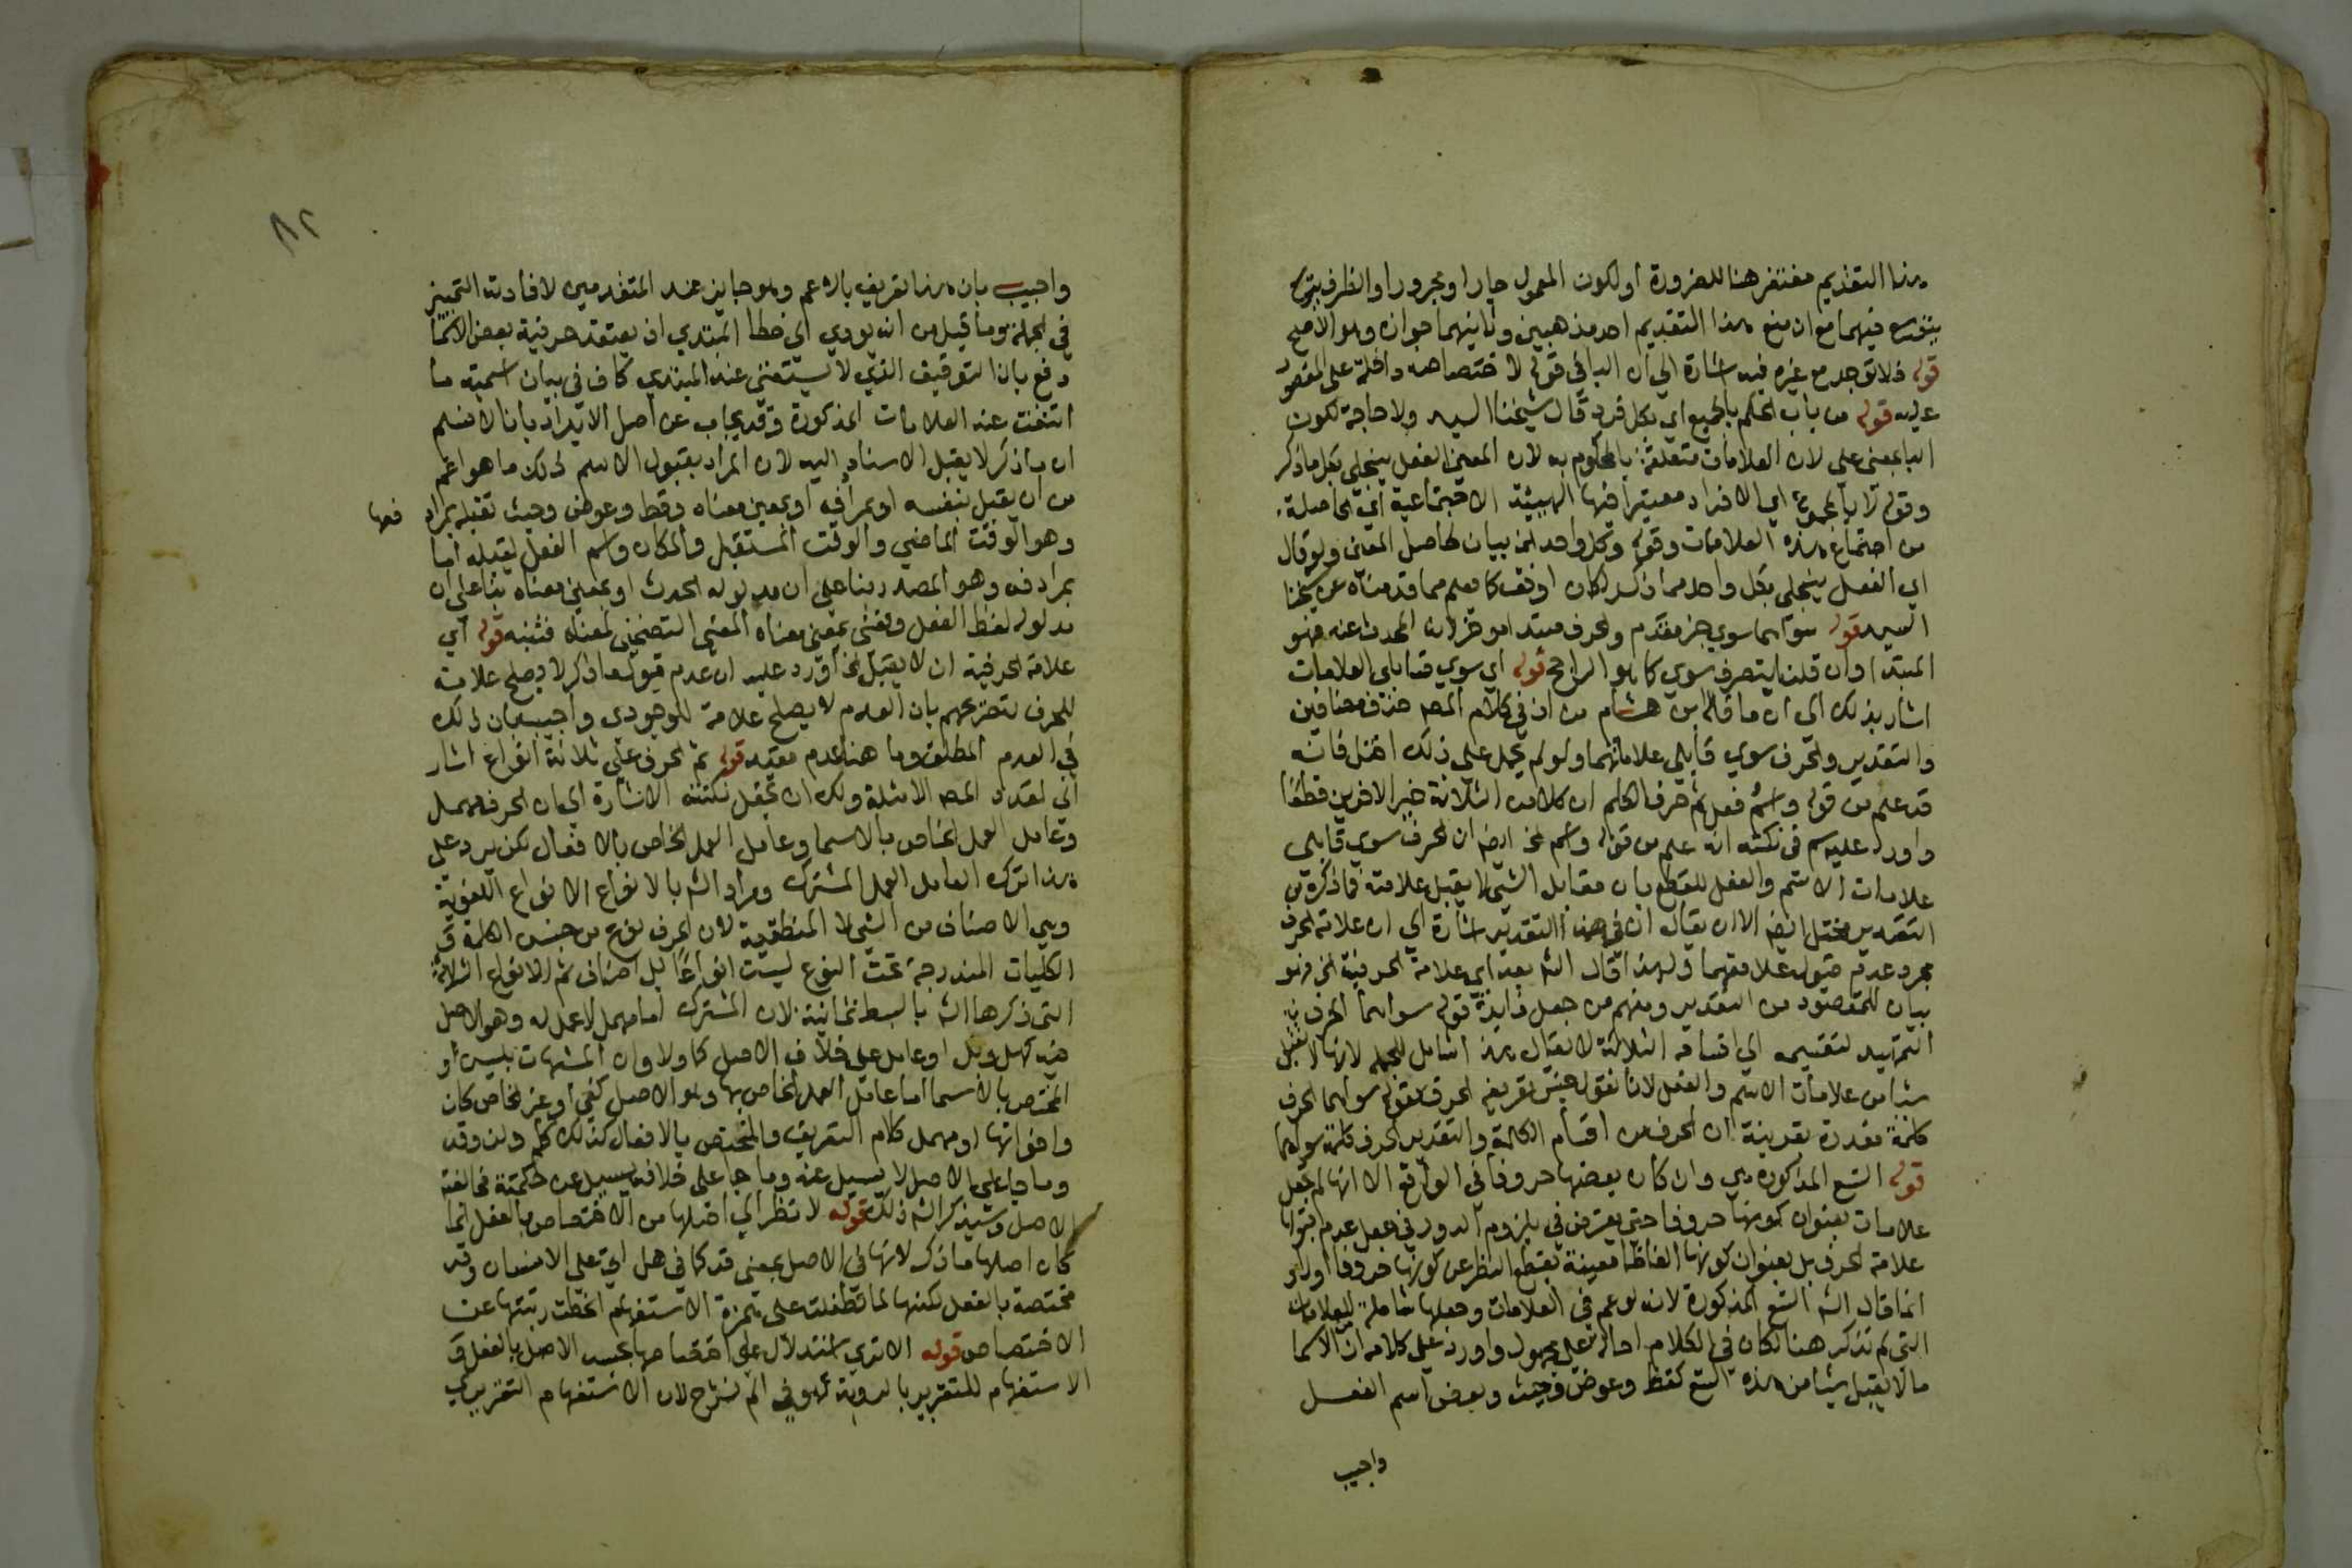 هذا التقديم مغتفر هنا للضرورة أو لكون المعمول جارا ومجرورا والظرف يتوسع
يتوسع فيهما مع ان منع هذا التقديم احد مذهبين وثانيهما جوازه وهو الأصح
قوله فلا توجد مع غيره فيه اشارة الي ان البا في قوله لاختصاصه داخلة علي المقصور
عليه قوله من باب الحكم بالجميع اي بكل فرد قال شيخنا السيد ولا حاجة لكون
البا بمعني علي لان العلامات متعلقة بالمحكوم به لان المعني الفعل ينجلي بكل ما ذكر
وقوله لا بالمجموع اي الافراد معتبرا فيها الهيئة الاجتماعية اي الحاصلة
من اجتماع هذه العلامات وقوله وكل واحد الخ بيان لحاصل المعني ولو قال
اي الفعل ينجلي بكل واحد مما ذكر لكان اوفق كما يعلم مما قدمناه عن شيخنا
السيد قوله سواهما سوي خبر مقدم والحرف مبتدا موخر لان المحدث عنه فهو
المبتدا وان قلنا بتصرف سوي كما هو الراجح قوله اي سوي قابلي العلامات
اشار بذلك الي ان ما قاله ابن هشام من ان في كلام المص حذف مضافين
والتقدير والحرف سوي قابلي علاماتهما ولو لم يحمل علي ذلك اختل فانه
قد علم من قوله واسم وفعل ثم حرف الكلم ان كلا من الثلاثة غير الاخرين قطعا
واورد عليه سم في نكته انه علم من قوله واسم الخ ايضا ان الحرف سوي قابلي
علامات الاسم والفعل للقطع بان مقابل الشي لا يقبل علامته فما ذكره من
التقدير مختل ايضا الا ان يقال ان في هذا التقدير اشارة الي ان علامة الحرف
مجرد عدم قبول علامتهما ولهذا قال الش بعد اي علامة الحرفية الخ فهو
بيان للمقصود من التقدير ومنهم من جعل فايدة قوله سواهما الحرف
التمهيد لتقسيمه الي اقسامه الثلاثة لا يقال هذا شامل للجملة لانها لا تقبل
شيا من علامات الاسم والفعل لانا نقول جنس تعريف الحرف بقوله سواهما الحرف
كلمة مقدرة بقرينة ان الحرف من اقسام الكلمة والتقدير الحرف كلمة سواهما
قوله التسع المذكورة هي وان كان بعضها حروفا في الواقع الا انها لم تجعل
علامات بعنوان كونها حروفا حتي يعترض بلزوم الدور في جعل عدم قبولها
علامة الحرف بل بعنوان كونها الفاظا معينة بقطع النظر عن كونها حروفا اولا و
انما قال الش التسع المذكورة لانه لو عمم في العلامات وجعلها شاملة للعلامات
التي لم تذكر هنا لكان في الكلام احالة علي مجهول واورد علي كلامه ان من الاسما
ما لا يقبل شيا من هذه التسع كقط وعوض وحيث وبعض اسم الفعل
واجيب
٨٢
واجيب بان هذا تعريف بالاعم وهو جايز عند المتقدمين لافادته التمييز
في الجملة وما قيل من انه يودي الي خطا المبتدي اذ يعتقد حرفية بعض الاسما
دفع بان التوقيف الذي لا يستغني عنه المبتدي كاف في بيان اسمية ما
انتفت عنه العلامات المذكورة وقد يجاب عن اصل الايراد بانا لا نسلم
ان ما ذكر لا يقبل الاسناد اليه لان المراد بقبول الاسم لذلك ما هو اعم
من ان يقبل بنفسه او بمرادفه او بمعني معناه وقط وعوض وحيث تقبله بمرادفها
وهو الوقت الماضي والوقت المستقبل والمكان واسم الفعل يقبله اما
بمرادفه وهو المصدر بنا علي ان مدلوله الحدث او بمعني معناه بنا علي ان
مدلوله لفظ الفعل ونعني بمعني معناه المعني التضمني لمعناه فتنبه قوله اي
علامة الحرفية ان لا يقبل الخ اورد عليه ان عدم قبول ما ذكر لا يصلح علامة
للحرف لتصريحهم بان العدم لا يصلح علامة للوجودي واجيب بان ذلك
في العدم المطلق وما هنا عدم مقيد قوله ثم الحرف علي ثلاثة انواع اشار
الي تعدد المص الامثلة ولك ان تجعل نكتته الاشارة الي ان الحرف مهمل
وعامل العمل الخاص بالاسما وعامل العمل الخاص بالافعال لكن يرد علي
هذا ترك العامل العمل المشترك ومراد الش بالانواع الانواع اللغوية
وهي الاصناف من الشي لا المنطقية لان الحرف نوع من جنس الكلمة و
الكليات المندرجة تحت النوع ليست انواعا بل اصناف ثم الانواع الثلاثة
التي ذكرها الش بالبسط ثمانية لان المشترك اما مهمل لا عمل له وهو الاصل
فيه كهل وبل او عامل علي خلاف الاصل كما ولا وان المشبهات بليس او
المختص بالاسما اما عامل العمل الخاص بها وهو الاصل كفي او غير الخاص كان
واخواتها او مهمل كلام التعريف والمختص بالافعال كذلك كلم ولن وقد
وما جا علي الاصل لا يسيل عنه وما جا علي خلافه يسيل عن حكمة مخالفة
الاصل وسيذكر الش ذلك قوله لا نظرا الي اصلها من الاختصاص بالفعل انما
كان اصلها ما ذكر لانها في الاصل بمعني قد كما في هل اتي علي الانسان وقد
مختصة بالفعل لكنها لما تطفلت علي همزة الاستفهام انحطت رتبتها عن
الاختصاص قوله الا تري استدلال علي اختصاصها بحسب الاصل بالفعل و
الاستفهام للتقرير بالروية كهو في الم نشرح لان الاستفهام التقريري